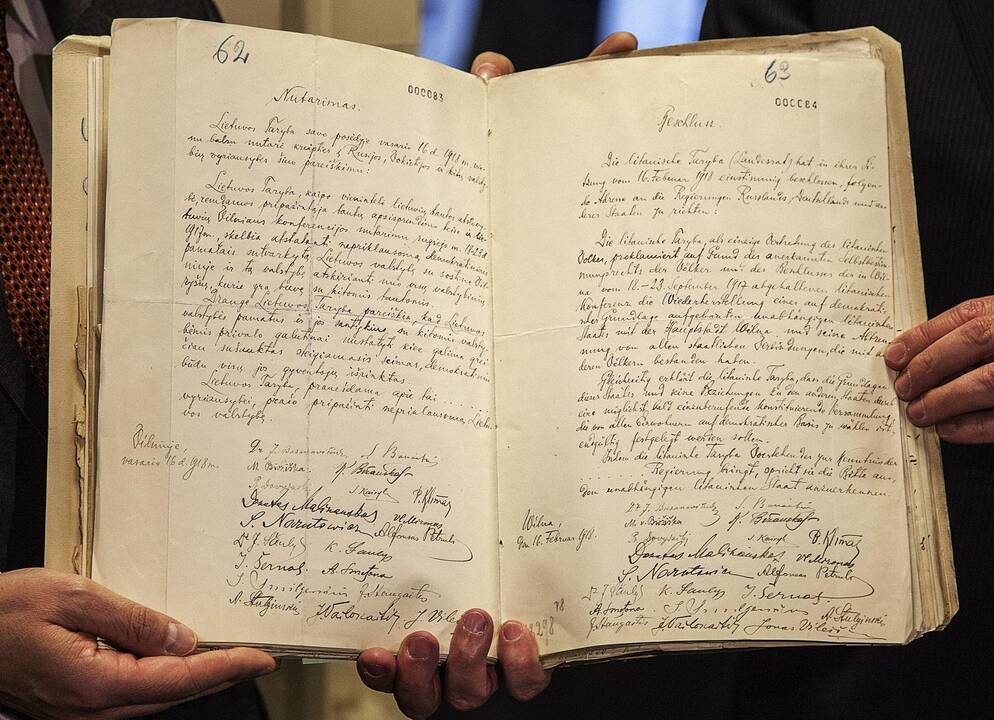 62
000083
Nutarimas.
Lietuvos Taryba savo posėdyje vasario 16 d. 1918 m. vie-
nu balsu nutarė kreiptis į Rusijos, Vokietijos ir kitų valsty-
bių vyriausybes šiuo pareiškimu:
Lietuvos Taryba, kaipo vienintelė lietuvių tautos atstovy-
bė, remdamos pripažintąja tautų apsisprendimo teise ir lie-
tuvių Vilniaus konferencijos nutarimu rugsėjo m. 18-23 d.
1917 m., skelbia atstatanti nepriklausomą demokratiniais
pamatais sutvarkytą Lietuvos valstybę su sostine Vil-
niuje ir tą valstybę atskirianti nuo visų valstybinių
ryšių, kurie yra buvę su kitomis tautomis.
Drauge Lietuvos Taryba pareiškia, kad Lietuvos
valstybės pamatus ir jos santykius su kitomis valsty-
bėmis privalo galutinai nustatyti kiek galima grei-
čiau sušauktas steigiamasis seimas, demokratiniu
būdu visų jos gyventojų išrinktas.
Lietuvos Taryba, pranešdama apie tai ........
vyriausybei, prašo pripažinti nepriklausomą Lietu-
vos valstybę.
Vilniuje,
vasario 16 d. 1918 m.
Dr. J. Basanavičius S. Banaitis
M. Biržiška K. Bizauskas
P. Dovydaitis S. Kairys P. Klimas
Donatas Malinauskas Vl. Mironas
S. Narutowicz Alfonsas Petrulis
Dr. J. Šaulys K. Šaulys
J. Šernas A. Smetona
S. Smilgevičius J. Staugaitis
A. Stulginskis J. Vailokaitis J. Vileišis
63
000084
Beschluss.
Die litauische Taryba (Landesrat) hat in ihrer Sit-
zung vom 16. Februar 1918 einstimmig beschlossen, folgen-
de Adresse an die Regierungen Russlands, Deutschlands und an-
derer Staaten zu richten:
Die litauische Taryba, als einzige Vertretung des litauischen
Volkes, proklamiert auf Grund des anerkannten Selbstbestim-
mungsrechts der Völker und des Beschlusses der in Wil-
na vom 18.-23. September 1917 abgehaltenen litauischen
Konferenz die Wiederherstellung eines auf demokrati-
scher Grundlage aufgebauten unabhängigen litauischen
Staates mit der Hauptstadt Wilna und seine Abtren-
nung von allen staatlichen Verbindungen, die mit an-
deren Völkern bestanden haben.
Gleichzeitig erklärt die litauische Taryba, dass die Grundlagen
dieses Staates und seine Beziehungen zu den anderen Staaten durch
eine möglichst bald einzuberufende konstituierende Versammlung,
die von allen Einwohnern auf demokratischer Basis zu wählen ist,
endgültig festgelegt werden sollen.
Indem die litauische Taryba Vorstehendes zur Kenntnis der
........ Regierung bringt, spricht sie die Bitte aus,
den unabhängigen litauischen Staat anzuerkennen.
Wilna,
den 16. Februar 1918.
Dr. J. Basanavičius S. Banaitis
M. v. Biržiška K. Bizauskas
P. Dovydaitis S. Kairys P. Klimas
Donatas Malinauskas Vl. Mironas
S. Narutowicz Alfonsas Petrulis
Dr. J. Šaulys K. Šaulys J. Šernas
A. Smetona S. Smilgevičius A. Stulginskis
J. Staugaitis J. Vailokaitis Jonas Vileišis